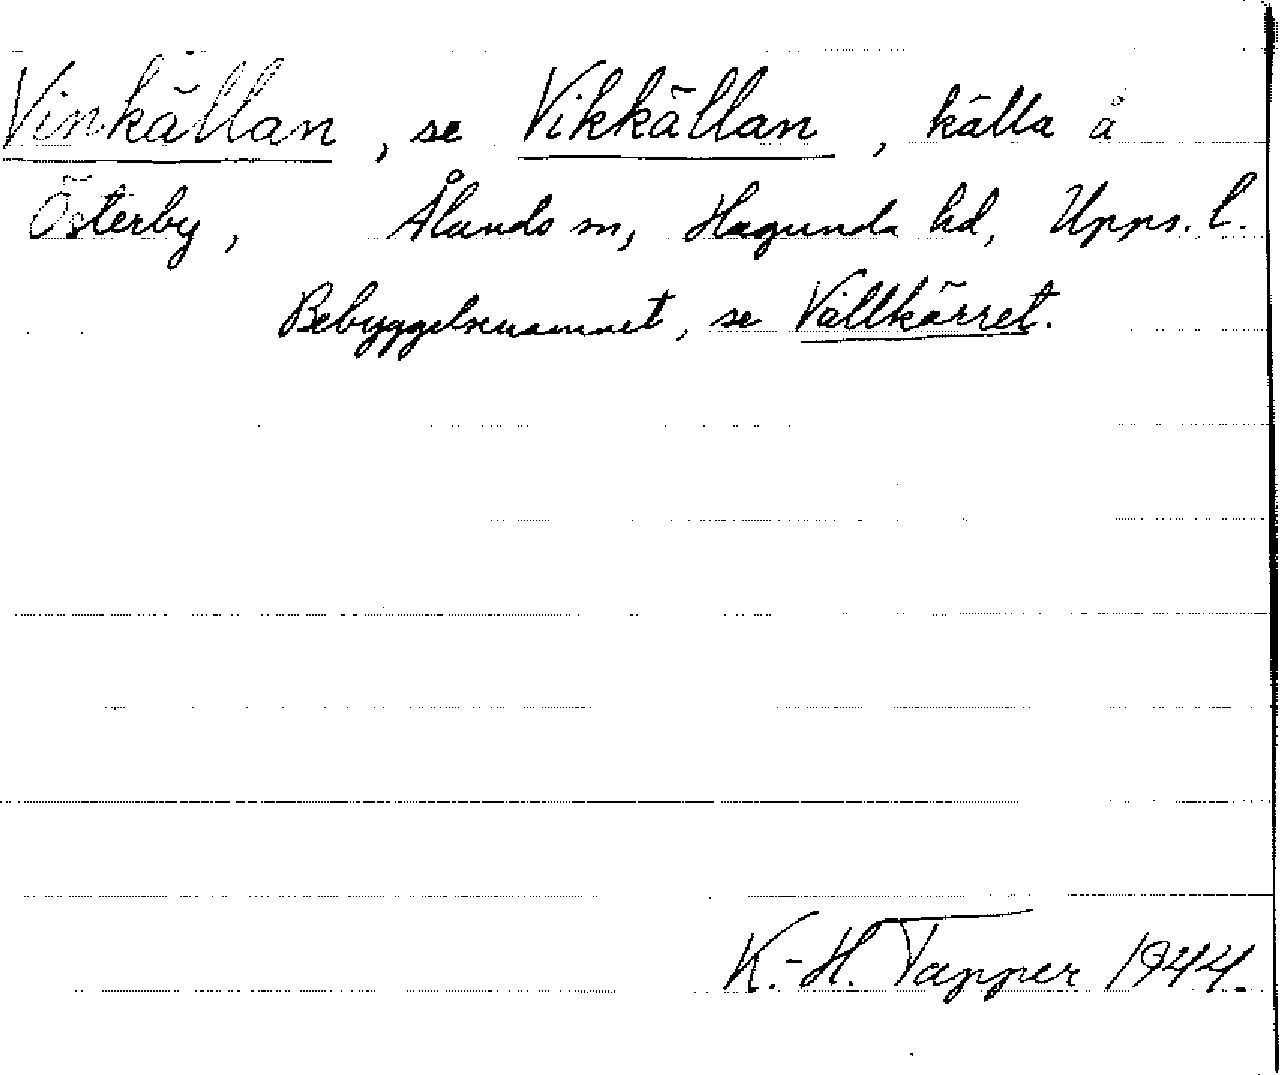 Vinkällan, se Vikkällan, källa å
Österby, Ålands sn, Hagunda hd, Upps. l.
Bebyggelsenamnet, se Vållkärret.
K.-H. Tapper 1944.